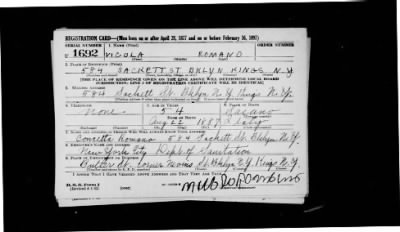 REGISTRATION CARD—(Men born on or after April 28, 1877 and on or before February 16, 1897)
SERIAL NUMBER 1. NAME (Print) ORDER NUMBER
U 1692 NICOLA ROMANO
(First) (Middle) (Last)
2. PLACE OF RESIDENCE (Print)
584 SACKETT ST BKLYN KINGS N.Y.
(Number and street) (Town, township, village, or city) (County) (State)
[THE PLACE OF RESIDENCE GIVEN ON THE LINE ABOVE WILL DETERMINE LOCAL BOARD
JURISDICTION; LINE 2 OF REGISTRATION CERTIFICATE WILL BE IDENTICAL]
3. MAILING ADDRESS
584 Sackett St. Bklyn N.Y. Kings N.Y.
4. TELEPHONE 5. AGE IN YEARS 6. PLACE OF BIRTH
None 54
DATE OF BIRTH
Aug 22 1887 Italy
7. NAME AND ADDRESS OF PERSON WHO WILL ALWAYS KNOW YOUR ADDRESS
Romano 584 Sackett St. Bklyn N.Y.
8. EMPLOYER'S NAME AND ADDRESS
New York City Dept. of Sanitation
9. PLACE OF EMPLOYMENT OR BUSINESS
Butler St. corner Nevins St. Bklyn N.Y. Kings N.Y.
I AFFIRM THAT I HAVE VERIFIED ABOVE ANSWERS AND THAT THEY ARE TRUE.
D. S. S. Form 1